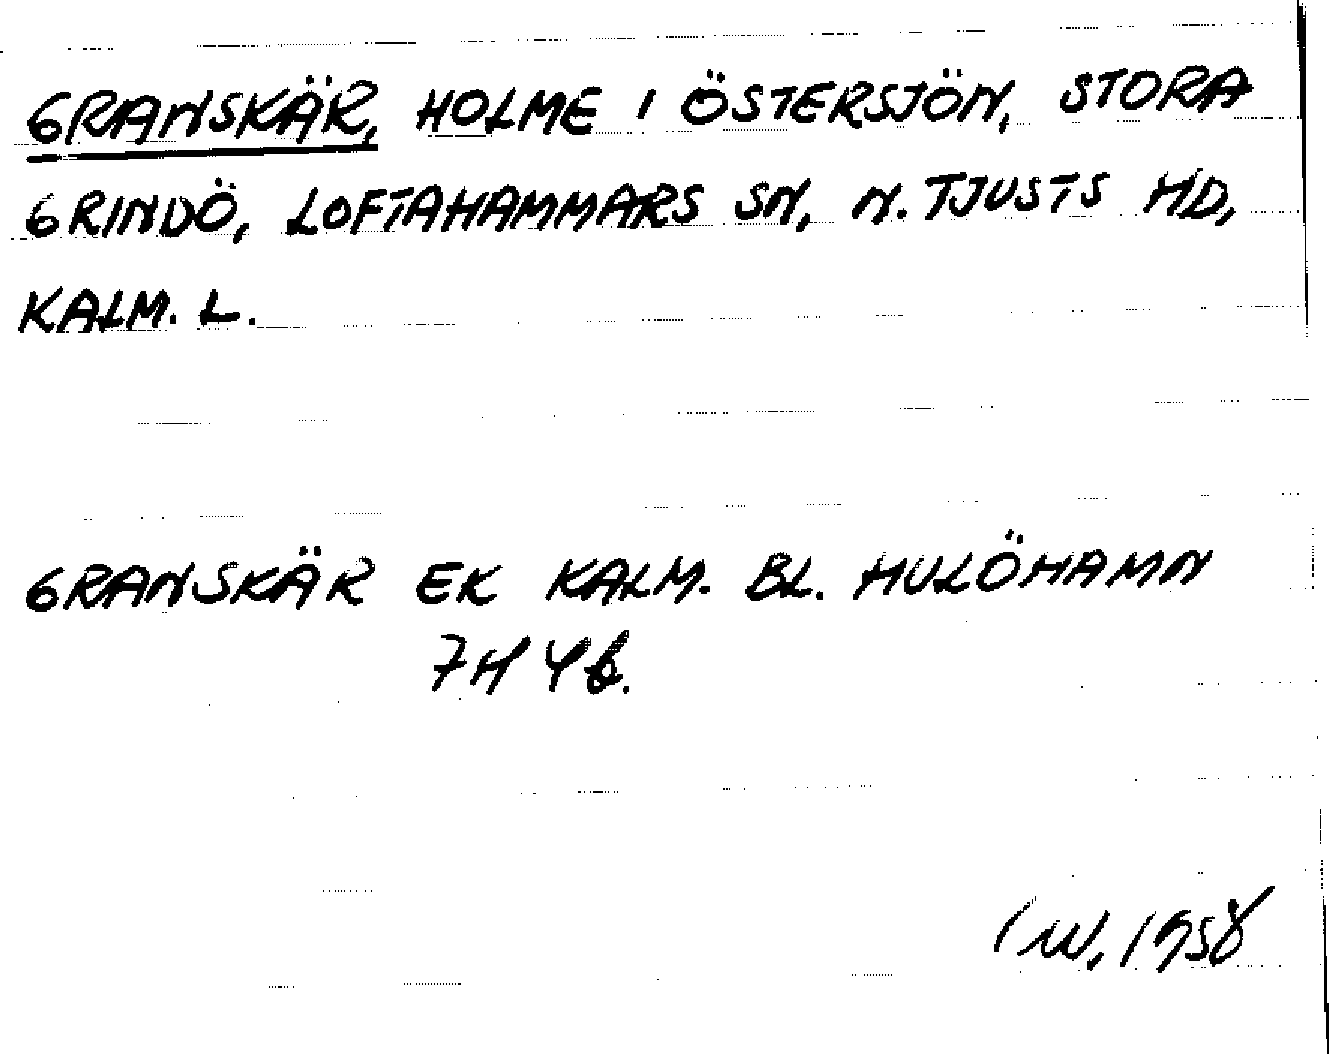 GRANSKÄR, HOLME I ÖSTERSJÖN, STORA
GRINDÖ, LOFTAHAMMARS SN, N. TJUSTS HD,
KALM. L.
GRANSKÄR EK KALM. BL. HULÖHAMN
7H 4b.
1958